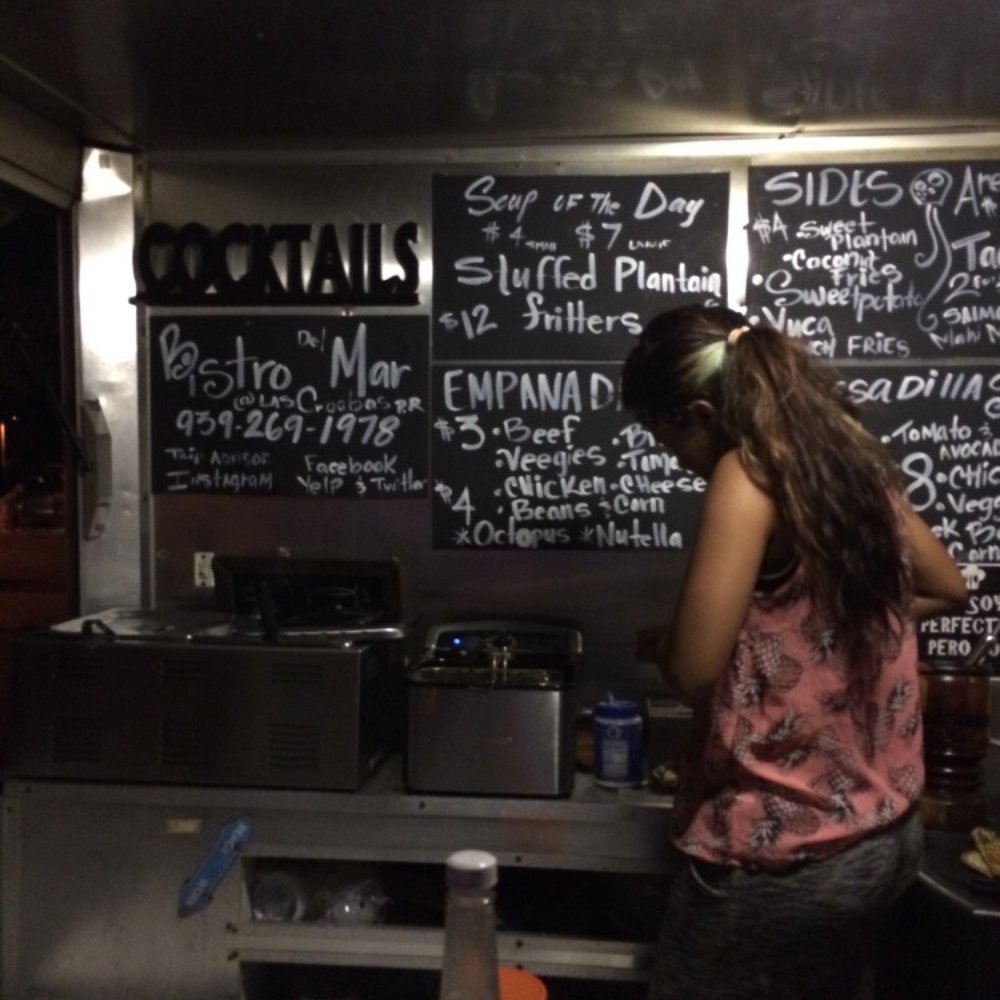 COCKTAILS
Bistro Del Mar
@ LAS Croabas P.R
939-269-1978
Trip Advisor Facebook
Instagram Yelp & Twitter
Soup OF The Day
$4 SMALL $7 LARGE
Stuffed Plantain
$12 fritters
EMPANAD
$3 • Beef
• Veegies
• CHicken • CHeese
$4 • Beans & Corn
* Octopus * Nutella
SIDES
$4 • Sweet
Plantain
• Coconut
Fries
• Sweetpotato
• Yuca
FRIES
Are
Ta
2 for
SADillAS
• TOMATO &
AVOCAD
8 • CHIC
• Veg
Corn
SOY
PERFECT
PERO